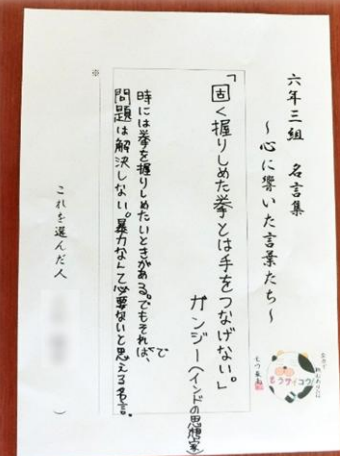 六年三組 名言集
～心に響いた言葉たち～
「固く握りしめた拳とは手をつなげない。」
ガンジー（インドの思想家）
時には拳を握りしめたいときがある。でもそれでは、
問題は解決しない。暴力なんて必要ないと思える名言。
※
これを選んだ人（ ）